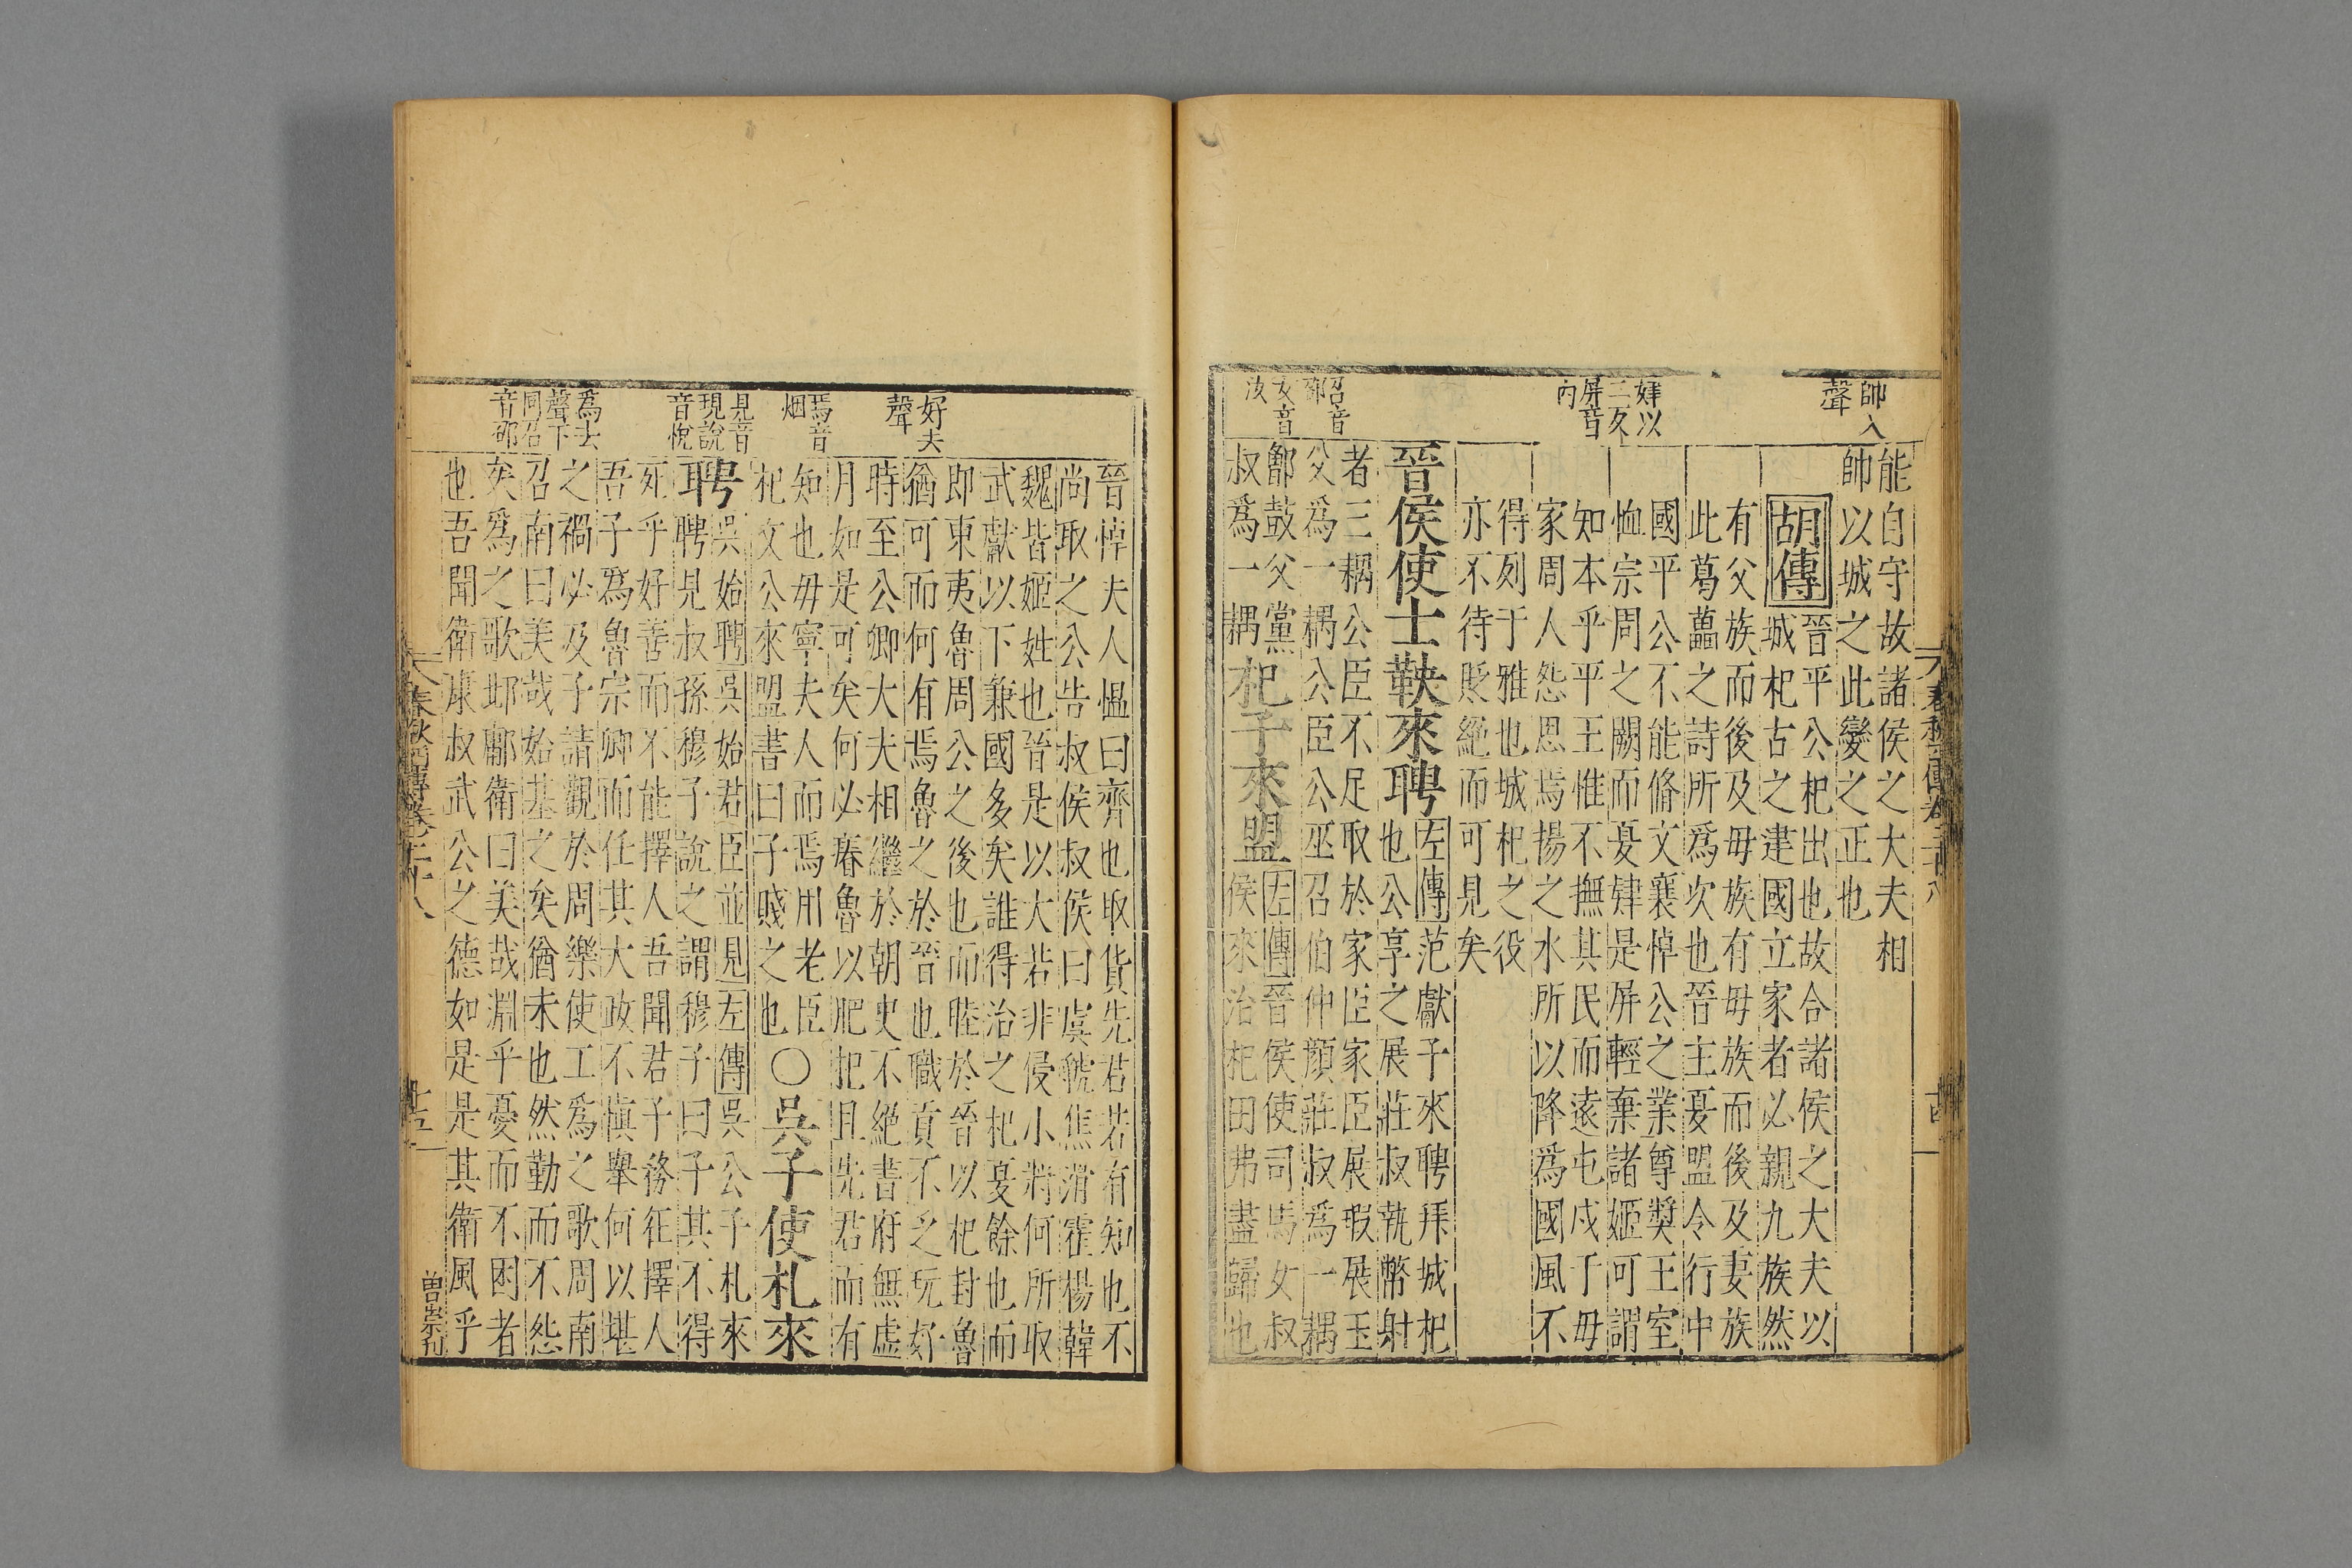 帥入
聲
肄以
二反
屏音
內
召音
邵
女音
汝
能自守故諸侯之大夫相
帥以城之此變之正也
胡傳
晉平公杞出也故合諸侯之大夫以
城杞古之建國立家者必親九族然
有父族而後及母族有母族而後及妻族
此葛藟之詩所爲次也晉主夏盟令行中
國平公不能脩文襄悼公之業尊獎王室
恤宗周之闕而夏肄是屏輕棄諸姬可謂
知本乎平王惟不撫其民而遠屯戍于母
家周人怨思焉揚之水所以降爲國風不
得列于雅也城杞之役
亦不待貶絕而可見矣
晉侯使士鞅來聘
左傳范獻子來聘拜城杞
也公享之展莊叔執幣射
者三耦公臣不足取於家臣家臣展瑕展玉
父爲一耦公臣公巫召伯仲顏莊叔爲一耦
鄫鼓父黨
叔爲一耦
杞子來盟
左傳晉侯使司馬女叔
侯來治杞田弗盡歸也
好去
聲
焉音
烟
見音
現說
音悅
爲去
聲下
同召
音邵
晉悼夫人慍曰齊也取貨先君若有知也不
尚取之公告叔侯叔侯曰虞虢焦滑霍楊韓
魏皆姬姓也晉是以大若非侵小將何所取
武獻以下兼國多矣誰得治之杞夏餘也而
即東夷魯周公之後也而睦於晉以杞封魯
猶可而何有焉魯之於晉也職貢不乏玩好
時至公卿大夫相繼於朝史不絕書府無虛
月如是可矣何必瘠魯以肥杞且先君而有
知也毋寧夫人而焉用老臣
杞文公來盟書曰子賤之也
〇吳子使札來
聘
吳始聘吳始君臣並見左傳吳公子札來
聘見叔孫穆子說之謂穆子曰子其不得
死乎好善而不能擇人吾聞君子務在擇人
吾子爲魯宗卿而任其大政不慎舉何以堪
之禍必及子請觀於周樂使工爲之歌周南
召南曰美哉始基之矣猶未也然勤而不怨
矣爲之歌邶鄘衛曰美哉淵乎憂而不困者
也吾聞衛康叔武公之德如是是其衛風乎
曾崇刊